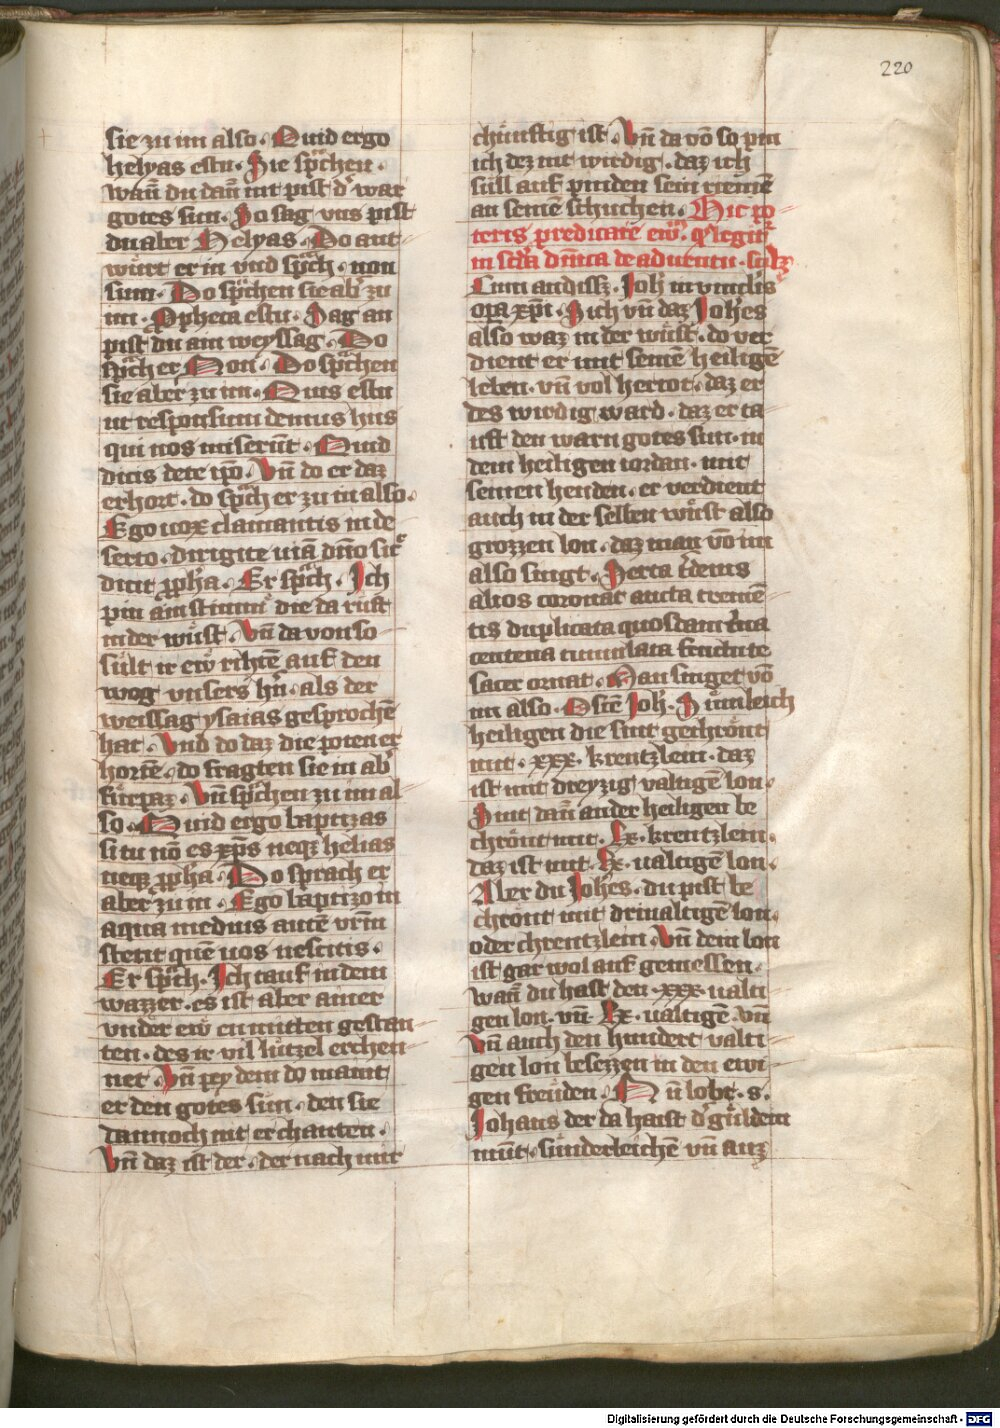 220
sie zu im also. Quid ergo
helyas es tu. Sie sp̄chen.
wañ du dañ nit pist d' war
gotes sun. So sag vns pist
du aber Helyas. Do ant
wůrt er in vnd sp̄ch. non
sum. Do sp̄chen sie ab' zu
im. Ppheta es tu. Sag an
pist du ain weyssag. Do
sp̄ch er Non. Do sp̄chen
sie aber zu im. Quis es tu
ut responsum demus hiis
qui nos miserūt. Quid
dicis de te ip̄o. Vn̄ do er daz
erhort. do sp̄ch er zu in also.
Ego uox clamantis in de
serto. dirigite uiā dn̄o sic'
dicit ppha. Er sp̄ch. Ich
pin ain stimm die da růft
in der wůst. Vn̄ da von so
sült ir ew̄ rihtē auf den
weg vnsers hn̄. als der
weissag ysaias gesprochē
hat. Vnd do daz die poten er
hortē. do fragten sie in ab'
fürpaz. Vn̄ sp̄chen zu im al
so. Quid ergo baptizas
si tu nō es xp̄s neqz helias
neqz ppha. Do sprach er
aber zu in. Ego baptizo in
aqua medius autē vr̄m
stetit quē uos nescitis.
Er sp̄ch. Ich tauf in dem
wazzer. es ist aber ainer
vnder ew̄ enmitten gestan
ten. des ir vil lützel erchen
net. Vn̄ pey dem do maint
er den gotes sun. den sie
dannoch nit erchanten.
Vn̄ daz ist der. der nach mir
chünftig ist. Vn̄ da vō so pin
ich dez nit wirdig. daz ich
süll auf pinden sein riemē
an seinē schuchen. Hic po
teris predicare ew̄. qđ legit'
in scđa dn̄ica de aduentu. scilz
Cum audissz. Joh' in vinclis
opa xp̄i. Sich vn̄ daz Joh'es
also waz in der wůst. do ver
dient er mit seinē heiligē
leben. vn̄ vol hertot. daz er
des wirdig ward. daz er ta
uft den warn gotes sun. in
dem heiligen iordan. mit
seinen henden. er verdient
auch in der selben wůst also
grozzen lon. daz man vō im
also singt. Serta t'denis
alios coronāt aucta cremē
tis duplicata quosdam t'na
centena cumulata fructu te
sacer ornat. Man singet vō
im also. O scē Joh'. Sümleich
heiligen die sint gechrönt
mit. xxx. krentzlein. daz
ist mit dreyzig valtigē lon.
Sint dañ ander heiligen be
chrönt mit. Lx. krentzlein.
daz ist mit. Lx. ualtigē lon.
Aber du Joh'es. du pist be
chrönt mit driualtigē lon.
oder chrentzlein. Vn̄ dem lon
ist gar wol auf gemessen.
wañ du hast den. xxx. ualti
gen lon. vn̄. Lx. ualtigē. vn̄
Vn̄ auch den hundert valti
gen lon besezzen in den ewi
gen freüden. Nu lobt. s.
Johans der da haist d' güldein
mūt. sunderleichē vn̄ auz
Digitalisierung gefördert durch die Deutsche Forschungsgemeinschaft - DFG